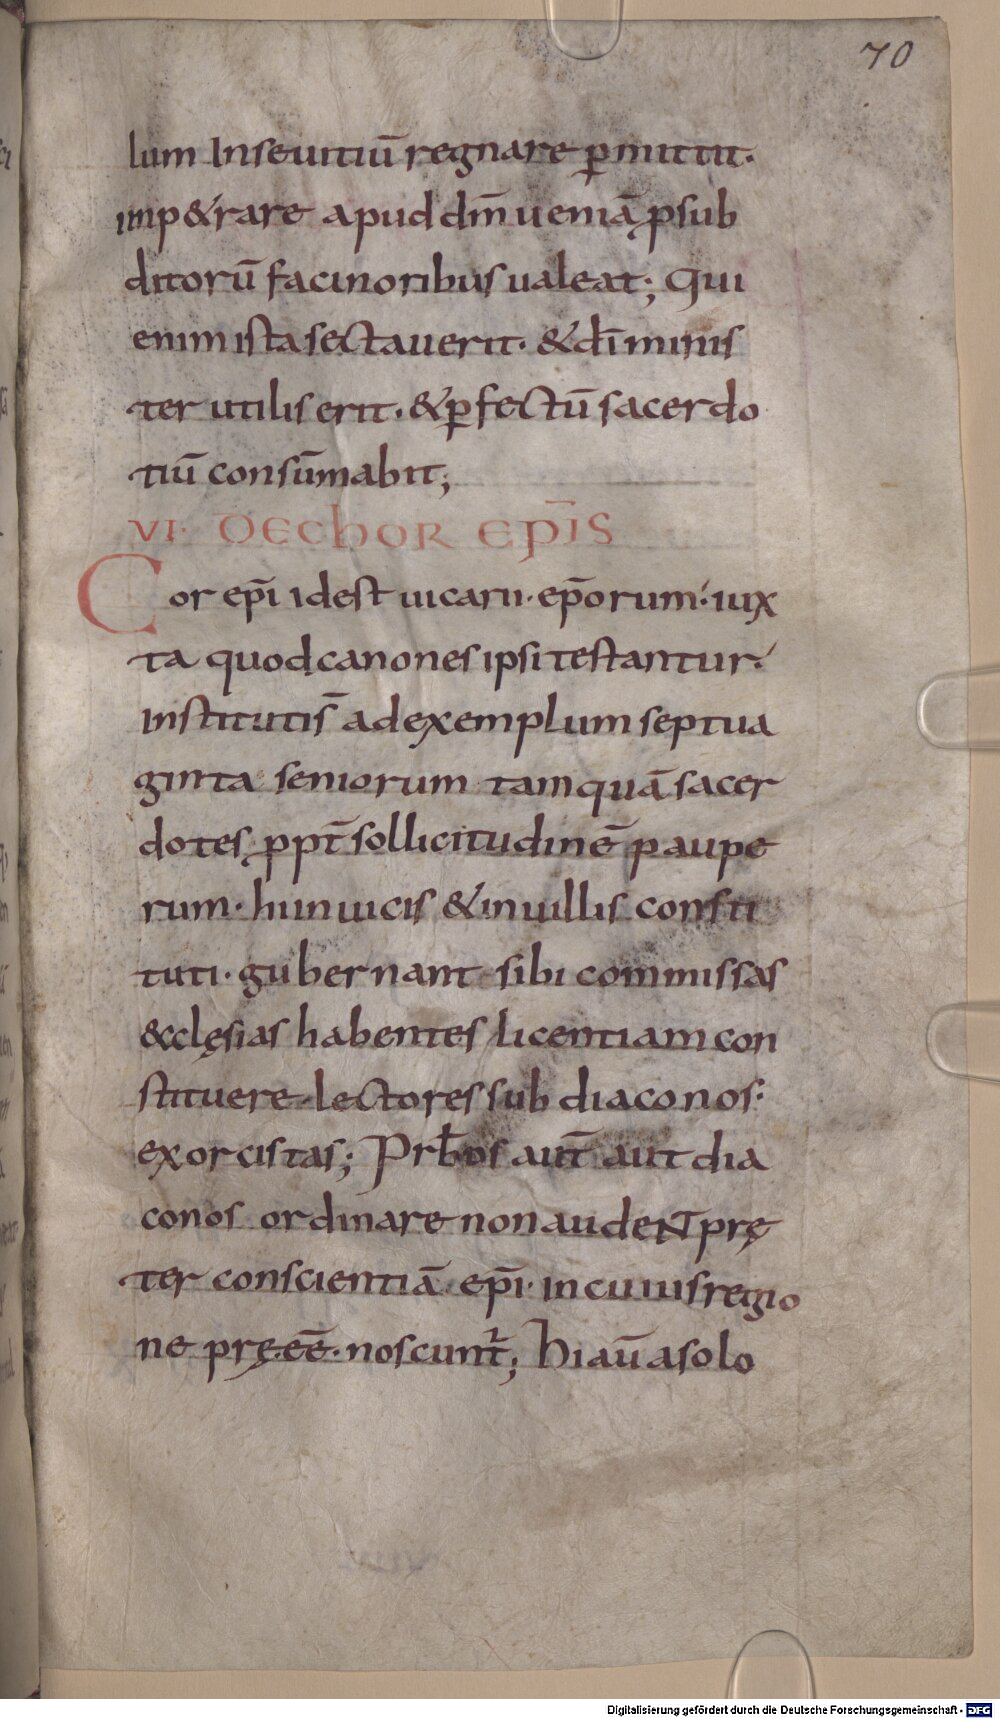 70
lum Inseuitiū regnare ꝑmittit·
imp&rare apud dm̄ ueniā ꝓ sub
ditorū facinoribus ualeat; Qui
enim ista sectauerit· & dī minis
ter utilis erit· & ꝑfectū sacerdo
tiū consūmabit;
VI· DE CHOR EP̄IS
Cor ep̄i idest uicarii· ep̄orum· iux
ta quod canones ipsi testantur·
Institutis̄ ad exemplum septua
ginta seniorum tamquā sacer
dotes ꝓpt̄ sollicitudinē paupe
rum· hi in uicis & in uillis consti
tuti· gubernant sibi commissas
&clęsias habentes licentiam con
stituere lectores sub diaconos·
exorcistas; Prb̄os aut̄ aut dia
conos ordinare non audeNT prę
ter conscientiā ep̄i· in cuius regio
ne prę·eē· noscunt̄; Hi aū a solo
Digitalisierung gefördert durch die Deutsche Forschungsgemeinschaft - DFG